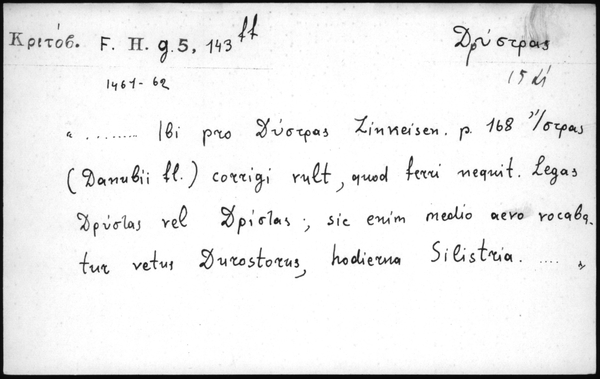 Κριτόβ. F. H. g. 5, 143 ff Δρύστρας
1461-62
" ......... Ibi pro Δύστρας Zinkeisen. p. 168 Ἴστρας
(Danubii fl.) corrigi vult, quod ferri nequit. Legas
Δρύστας vel Δρίστας; sic enim medio aevo vocaba-
tur vetus Durostorus, hodierna Silistria. .... "